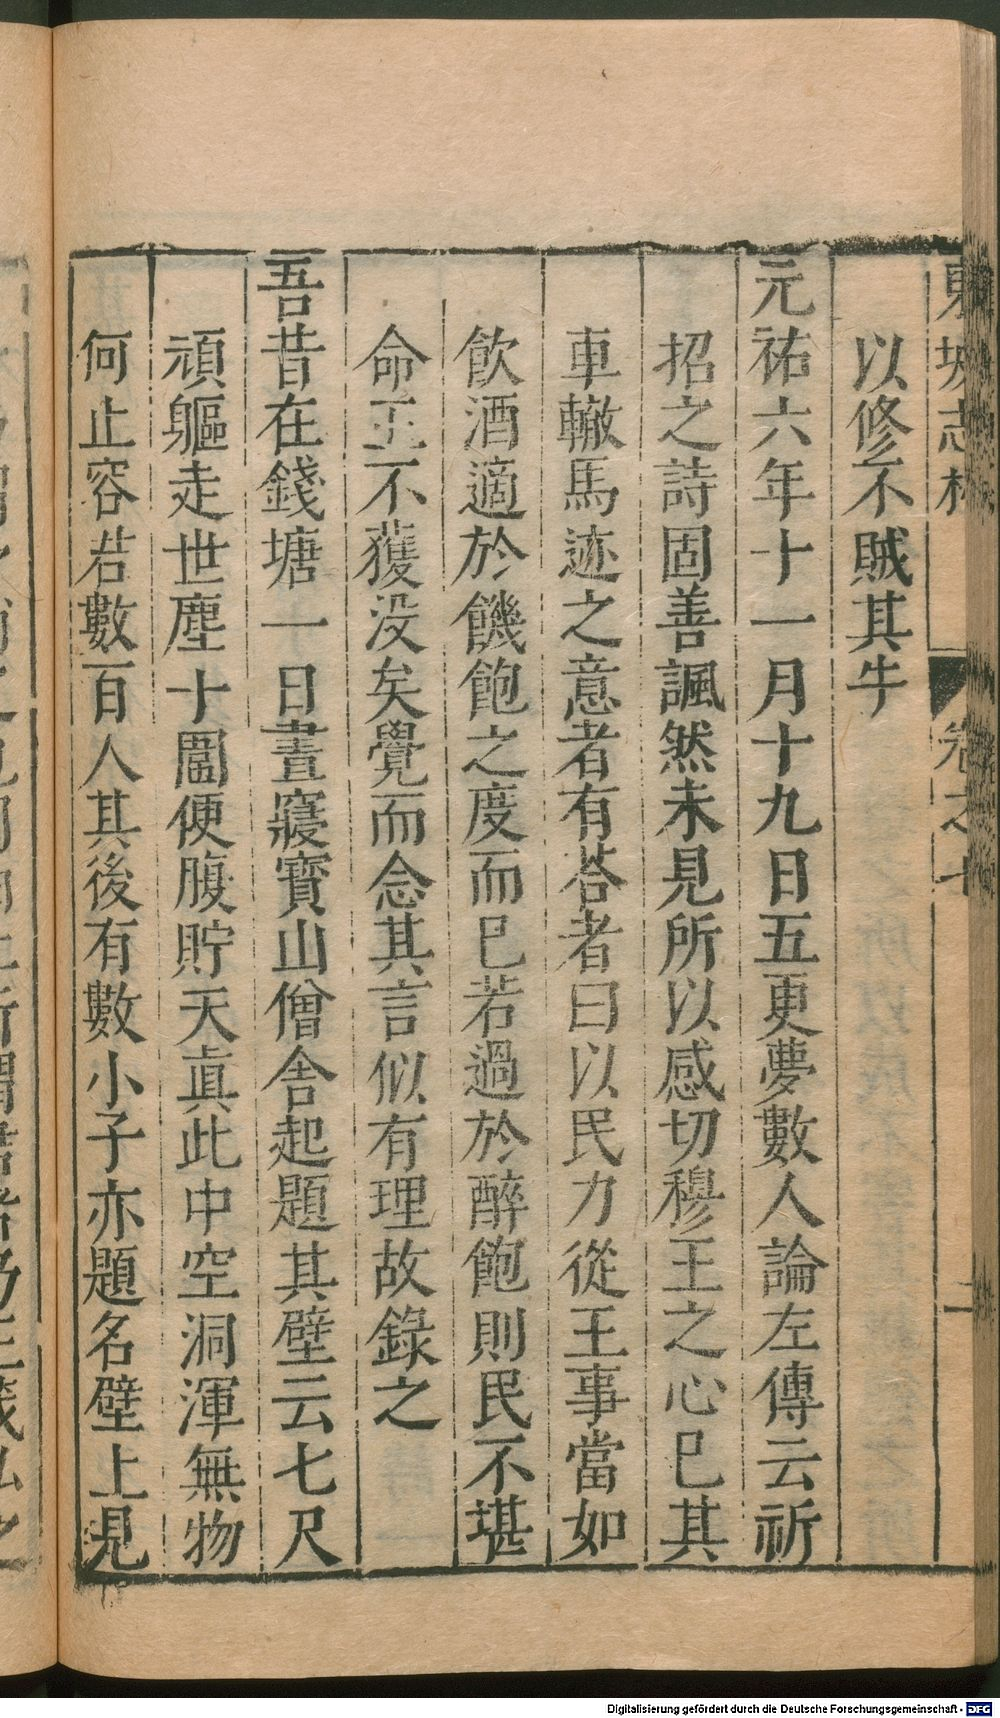 東坡志林 卷之七 一
以修不賊其牛
元祐六年十一月十九日五更夢數人論左傳云祈
招之詩固善諷然未見所以感切穆王之心已其
車轍馬迹之意者有荅者曰以民力從王事當如
飲酒適於饑飽之度而已若過於醉飽則民不堪
命王不獲没矣覺而念其言似有理故錄之
吾昔在錢塘一日晝寢寶山僧舍起題其壁云七尺
頑軀走世塵十圍便腹貯天真此中空洞渾無物
何止容若數百人其後有數小子亦題名壁上見
Digitalisierung gefördert durch die Deutsche Forschungsgemeinschaft - DFG